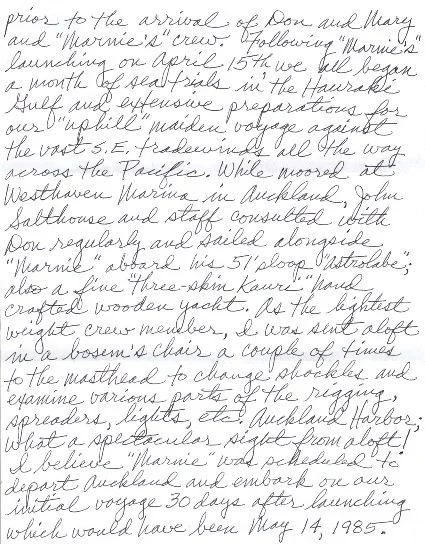 prior to the arrival of Don and Mary
and "Marnie's" crew. Following "Marnie's"
launching on April 15th we all began
a month of sea trials in the Hauraki
Gulf and extensive preparations for
our "uphill" maiden voyage against
the vast S.E. tradewinds all the way
across the Pacific. While moored at
Westhaven Marina in Auckland, John
Salthouse and staff consulted with
Don regularly and sailed alongside
"Marnie" aboard his 51' sloop "Astrolabe";
also a fine "three-skin Kauri" hand
crafted wooden yacht. As the lightest
weight crew member, I was sent aloft
in a bosem's chair a couple of times
to the masthead to change shockles and
examine various parts of the rigging,
spreaders, lights, etc. Auckland Harbor;
what a spectacular sight from aloft!
I believe "Marnie" was scheduled to
depart Auckland and embark on our
initial voyage 30 days after launching
which would have been May 14, 1985.